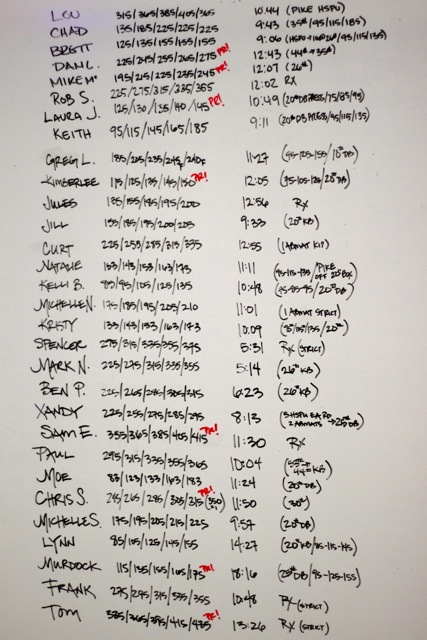 LOU 315/365/385/405/365 10:44 (PIKE HSPU)
CHAD 135/185/225/225/225 9:43 (35#/95/115/185)
BRETT 125/135/155/155/155 9:06 /95/115/135)
DAN L. 225/245/255/265/275 PR! 12:43 (44#→35#)
MIKE M. 195/215/225/235/245 PR! 12:07 (26#)
ROB S. 225/275/315/335/365 12:02 RX
LAURA J. 125/130/135/140/145 PR! 10:49 (20# DB PRESS/75/83/95)
KEITH 95/115/145/165/185 9:11 (20# DB PRESS/95/115/135)
GREG L. 185/205/235/245F/240F 11:27 (95-125-155/10# DB)
KIMBERLEE 115/125/135/145/150 PR! 12:05 (85-105-126/20# DB)
JULES 135/155/185/195/200 12:56 RX
JILL 155/185/195/200/205 9:33 (20# KB)
CURT 225/255/285/315/335 12:55 (1 ABMAT KIP)
NATALIE 133/143/153/163/173 11:11 (95-115-135/PIKE OFF 20" BOX)
KELLI B. 85/95/105/125/135 10:48 (75-85-95/20# DB)
MICHELLE N. 175/185/195/205/210 11:01 (1 ABMAT STRICT)
KRISTY 133/143/153/163/173 10:09
SPENCER 295/315/335/355/375 5:31 RX (STRICT)
MARK N. 225/275/315/335/355 5:14 (26# KB)
BEN P. 225/265/285/305/315 6:23 (26# KB)
XANDY 225/255/275/285/295 8:13 (3 HSPU EA RD 2 ABMATS → 25# DB)
SAM E. 355/365/385/405/415 PR! 11:30 RX
PAUL 295/315/335/355/365 10:04 (53#→ 44# KB)
MOE 83/123/133/163/183 11:24 (20# DB)
CHRIS S. 245/265/285/305/315 PR! 11:50 (30#)
MICHELLE S. 175/195/205/215/225 9:57 (20# DB)
LYNN 85/105/125/145/155 14:27 (20# KB/85-115-145)
MURDOCK 115/135/155/165/175 PR! 18:16 (25# DB/95-125-155)
FRANK 275/295/315/335/355 10:48 RX (STRICT)
TOM 335/365/385/415/435 PR! 13:26 RX (STRICT)